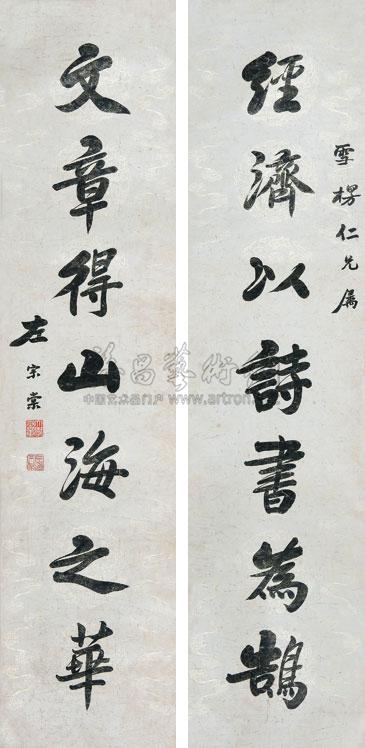 雪楞仁兄属
經濟以詩書為鵠
文章得山海之華
左宗棠
中国艺术品门户 www.artron